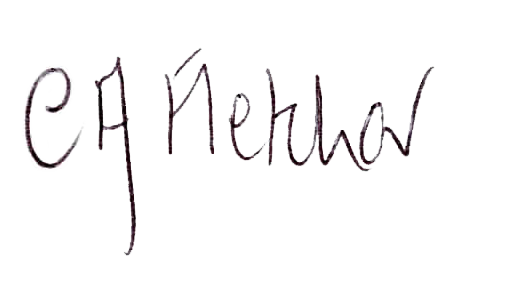 CA Fletcher